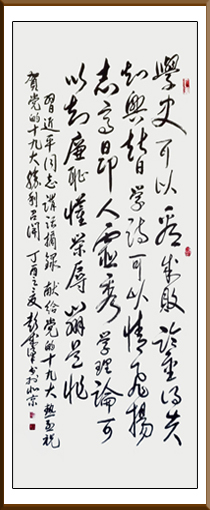 學史可以看成敗鉴得失
知興替學詩可以情飛揚
志高昂人靈秀學理論可
以知廉耻懂榮辱辨是非
習近平同志講話摘録獻給党的十九大熱烈祝
賀党的十九大勝利召開丁酉之夏彭书於北京